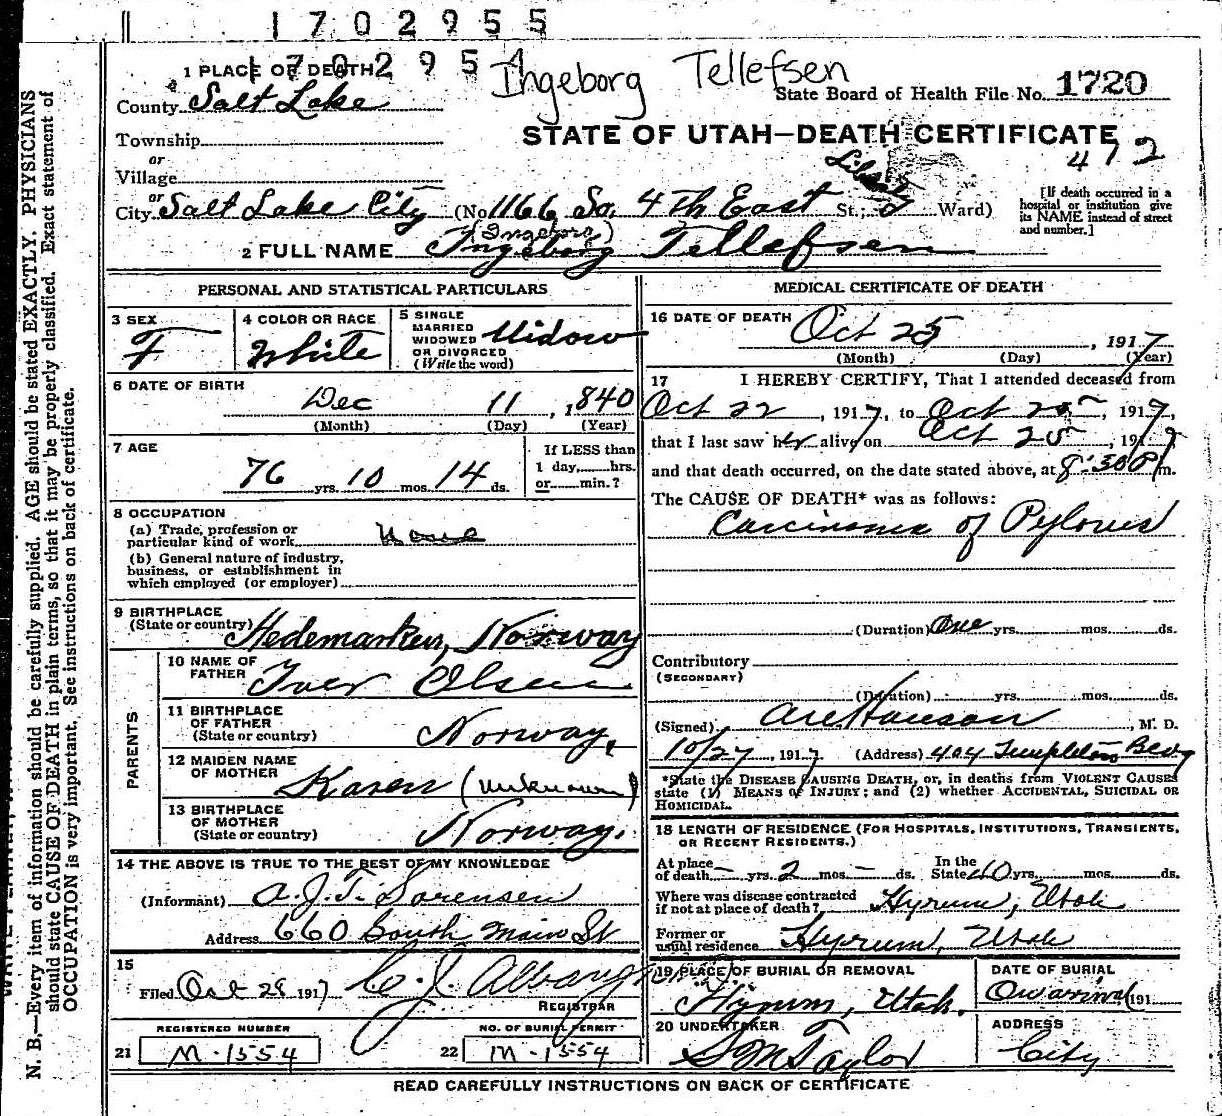 1702955
170295
Ingeborg Tellefsen
1 PLACE OF DEATH
County Salt Lake
State Board of Health File No. 1720
Township
STATE OF UTAH—DEATH CERTIFICATE
or
Village
472
or
City Salt Lake City (No. 1166 So. 4th East St.; 2 Ward)
[If death occurred in a hospital or institution give its NAME instead of street and number.]
(Ingeborg)
2 FULL NAME Ingeborg Tellefsen
PERSONAL AND STATISTICAL PARTICULARS
3 SEX F
4 COLOR OR RACE White
5 SINGLE MARRIED WIDOWED OR DIVORCED (Write the word) Widow
6 DATE OF BIRTH
Dec 11, 1840
(Month) (Day) (Year)
7 AGE
76 yrs. 10 mos. 14 ds.
If LESS than 1 day, hrs. or min.?
8 OCCUPATION
(a) Trade, profession or particular kind of work None
(b) General nature of industry, business, or establishment in which employed (or employer)
9 BIRTHPLACE
(State or country) Hedemarken, Norway
PARENTS
10 NAME OF FATHER Iver Olsen
11 BIRTHPLACE OF FATHER (State or country) Norway,
12 MAIDEN NAME OF MOTHER Karen (unknown)
13 BIRTHPLACE OF MOTHER (State or country) Norway.
14 THE ABOVE IS TRUE TO THE BEST OF MY KNOWLEDGE
(Informant) A.J.T. Sorensen
Address 660 South Main St
15
Filed Oct 29 1917 C.J.
REGISTRAR
REGISTERED NUMBER
21 M-1554
NO. OF BURIAL PERMIT
22 M-1554
MEDICAL CERTIFICATE OF DEATH
16 DATE OF DEATH Oct 25, 1917
(Month) (Day) (Year)
17 I HEREBY CERTIFY, That I attended deceased from
Oct 22, 1917, to Oct 25, 1917,
that I last saw her alive on Oct 25, 1917
and that death occurred, on the date stated above, at 8:30 P m.
The CAUSE OF DEATH* was as follows:
Carcinoma of Pylorus
(Duration) One yrs. mos. ds.
Contributory
(SECONDARY)
(Duration) yrs. mos. ds.
(Signed) Hanson, M. D.
10/27, 1917 (Address) 404 Templeton Bldg
*State the DISEASE CAUSING DEATH, or, in deaths from VIOLENT CAUSES state (1) MEANS OF INJURY; and (2) whether ACCIDENTAL, SUICIDAL OR HOMICIDAL.
18 LENGTH OF RESIDENCE (FOR HOSPITALS, INSTITUTIONS, TRANSIENTS, OR RECENT RESIDENTS.)
At place of death — yrs. 2 mos. — ds. In the State 40 yrs. mos. ds.
Where was disease contracted if not at place of death? Hyrum, Utah
Former or usual residence Hyrum, Utah
19 PLACE OF BURIAL OR REMOVAL
Hyrum, Utah.
DATE OF BURIAL
On arrival 191
20 UNDERTAKER
S M Taylor
ADDRESS
City
READ CAREFULLY INSTRUCTIONS ON BACK OF CERTIFICATE
N. B.—Every item of information should be carefully supplied. AGE should be stated EXACTLY. PHYSICIANS
should state CAUSE OF DEATH in plain terms, so that it may be properly classified. Exact statement of
OCCUPATION is very important. See instructions on back of certificate.